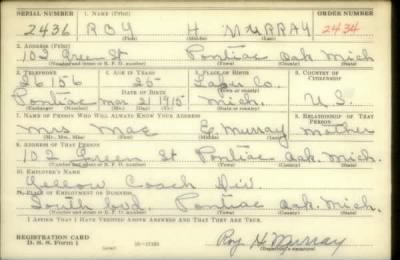 SERIAL NUMBER 1. NAME (Print) ORDER NUMBER
2436 ROY H MURRAY 2434
(First) (Middle) (Last)
2. ADDRESS (Print)
102 Green St Pontiac Oak. Mich
(Number and street or R. F. D. number) (Town) (County) (State)
3. TELEPHONE 4. AGE IN YEARS 5. PLACE OF BIRTH 6. COUNTRY OF CITIZENSHIP
26156 25 Lapeer Co.
DATE OF BIRTH (Town or county)
Pontiac Mar 21 1915 Mich. U.S.
(Exchange) (Number) (Mo.) (Day) (Yr.) (State or country)
7. NAME OF PERSON WHO WILL ALWAYS KNOW YOUR ADDRESS 8. RELATIONSHIP OF THAT PERSON
Mrs. Mae E. Murray Mother
(Mr., Mrs., Miss) (First) (Middle) (Last)
9. ADDRESS OF THAT PERSON
102 Green St Pontiac Oak. Mich.
(Number and street or R. F. D. number) (Town) (County) (State)
10. EMPLOYER'S NAME
Yellow Coach Div.
11. PLACE OF EMPLOYMENT OR BUSINESS
South Blvd. Pontiac Oak. Mich.
(Number and street or R. F. D. number) (Town) (County) (State)
I AFFIRM THAT I HAVE VERIFIED ABOVE ANSWERS AND THAT THEY ARE TRUE.
REGISTRATION CARD
D. S. S. Form 1 (over) Roy H. Murray
(Registrant's signature)